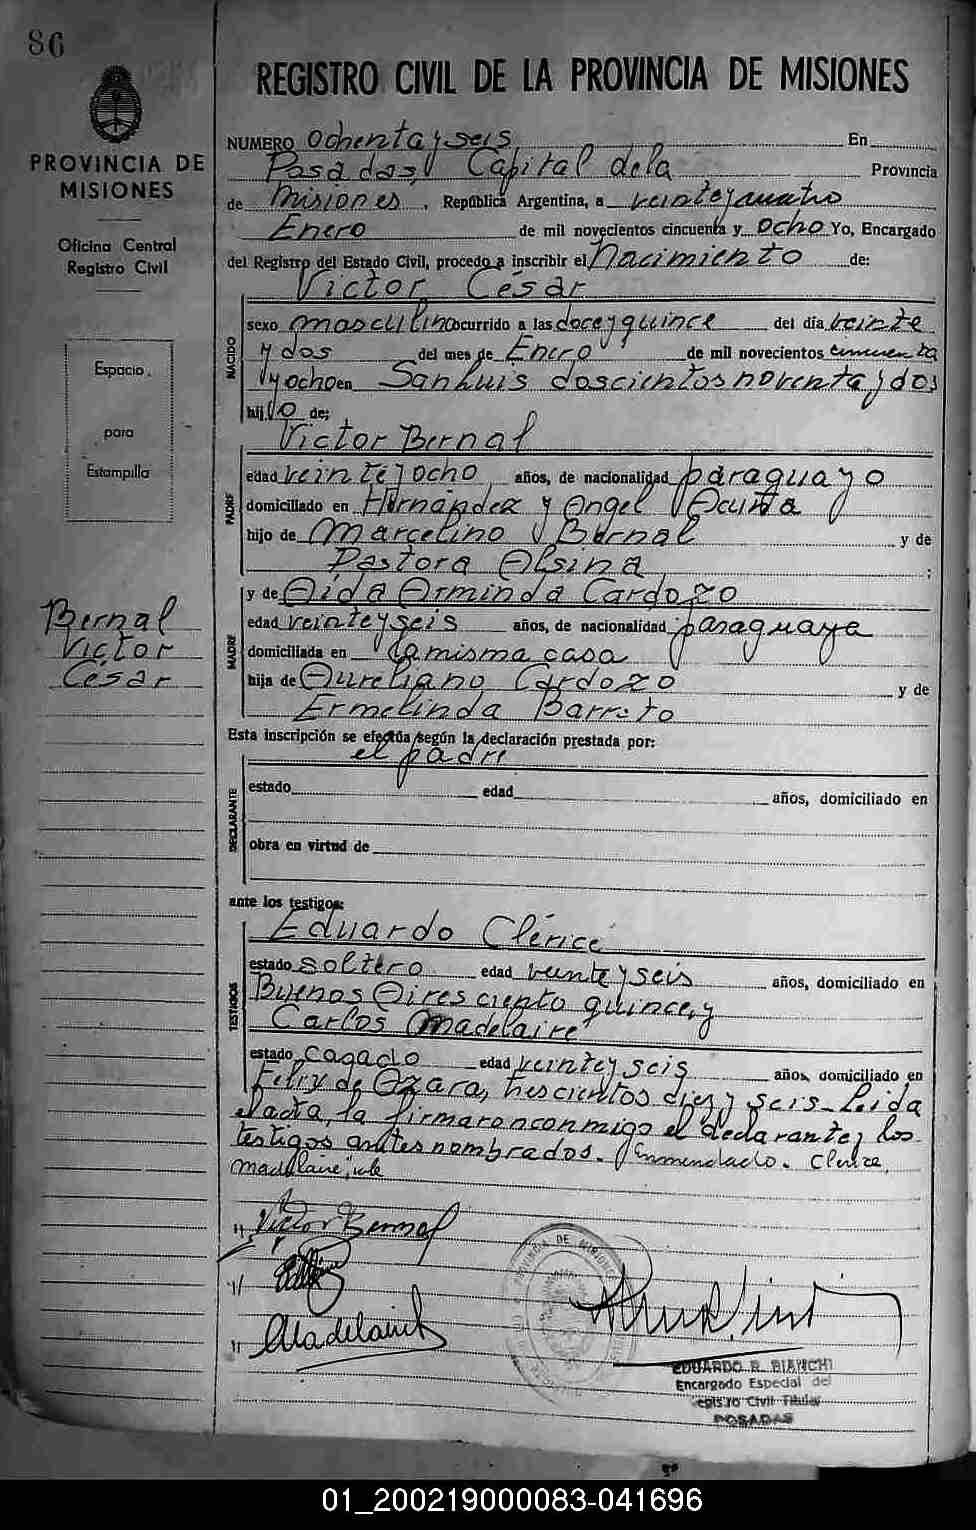 86
PROVINCIA DE
MISIONES
Oficina Central
Registro Civil
Espacio
para
Estampilla
Bernal
Victor
César
REGISTRO CIVIL DE LA PROVINCIA DE MISIONES
NUMERO ochenta y seis En
Posadas, Capital de la Provincia
de Misiones, República Argentina, a veinte y cuatro
Enero de mil novecientos cincuenta y ocho Yo, Encargado
del Registro del Estado Civil, procedo a inscribir el Nacimiento de:
NACIDO
Victor César
sexo masculino ocurrido a las doce y quince del día veinte
y dos del mes de Enero de mil novecientos cincuenta
y ocho en San Luis doscientos noventa y dos
hijo de:
PADRE
Victor Bernal
edad veinte y ocho años, de nacionalidad paraguayo
domiciliado en Hernández y Angel Acuña
hijo de Marcelino Bernal y de
Pastora Alsina ;
MADRE
y de Aida Arminda Cardozo
edad veinte y seis años, de nacionalidad paraguaya
domiciliada en la misma casa
hija de Aureliano Cardozo y de
Ermelinda Barreto
Esta inscripción se efectúa según la declaración prestada por:
DECLARANTE
el padre
estado edad años, domiciliado en
obra en virtud de
ante los testigos:
TESTIGOS
Eduardo Clérice
estado soltero edad veinte y seis años, domiciliado en
Buenos Aires ciento quince, y
Carlos Madelaire
estado casado edad veinte y seis años, domiciliado en
Felix de Azara, trescientos diez y seis. Leida
el acta, la firmaron conmigo el declarante y los
testigos antes nombrados. Enmendado. Clerice,
madelaire, vale
" Victor Bernal
"
" Madelaire
PROVINCIA DE MISIONES
EDUARDO R. BIANCHI
Encargado Especial del
Registro Civil Titular
POSADAS
01_200219000083-041696